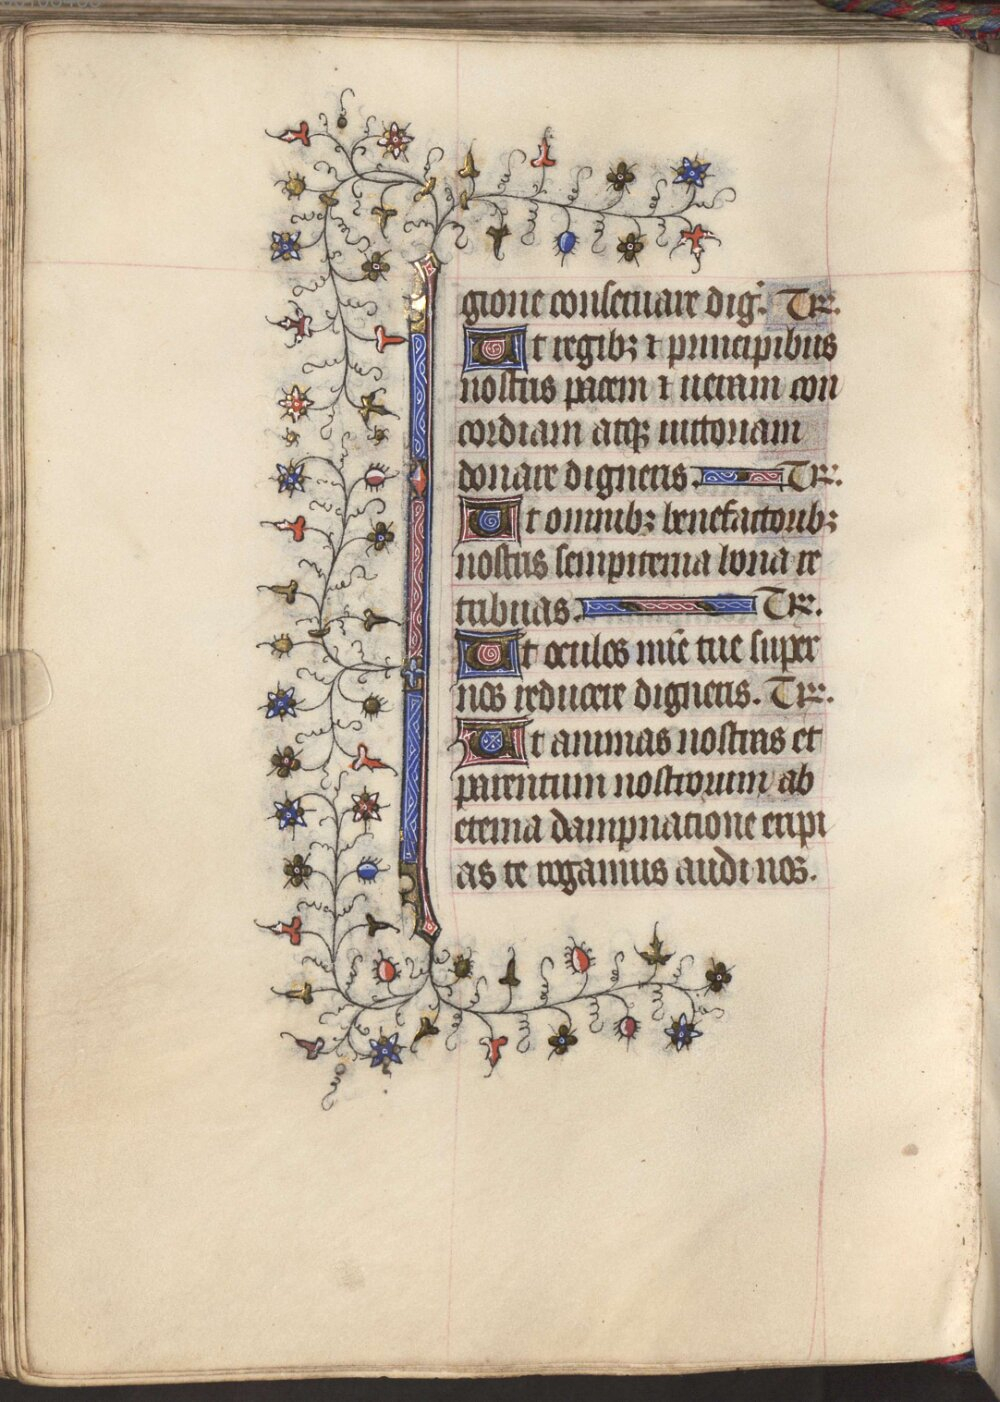 gione conseruare dig̃. Te r̃.
Ut regibꝫ ⁊ principibus
nostris pacem ⁊ ueram con
cordiam atqꝫ uictoriam
donare digneris. Te r̃.
Ut omnibꝫ benefactoribꝫ
nostris sempiterna bona re
tribuas. Te r̃.
Ut oculos mīe tue super
nos reducere digneris. Te r̃.
Ut animas nostras et
parentum nostrorum ab
eterna dampnatione eripi
as te rogamus audi nos.